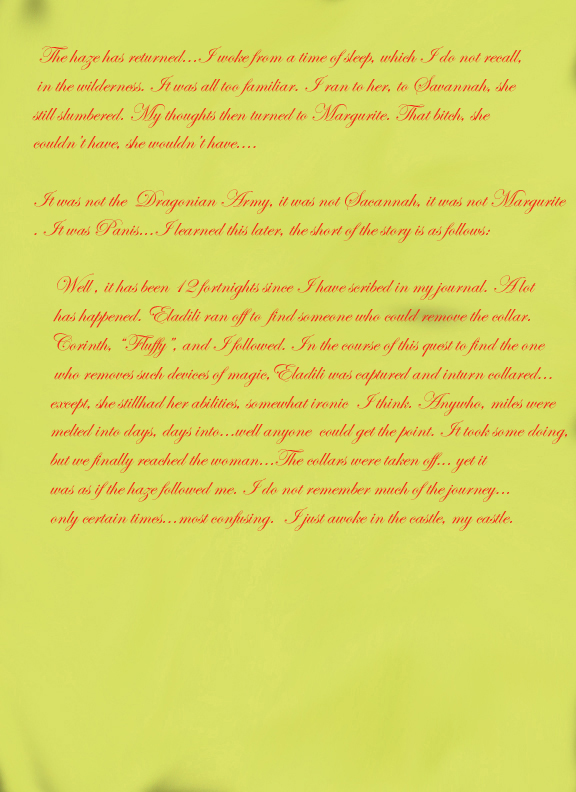 The haze has returned...I woke from a time of sleep, which I do not recall,
in the wilderness. It was all too familiar. I ran to her, to Savannah, she
still slumbered. My thoughts then turned to Margurite. That bitch, she
couldn't have, she wouldn't have....
It was not the Dragonian Army, it was not Sacannah, it was not Margurite
. It was Panis...I learned this later, the short of the story is as follows:
Well , it has been 12 fortnights since I have scribed in my journal. A lot
has happened. Eladili ran off to find someone who could remove the collar.
Corinth, "Fluffy", and I followed. In the course of this quest to find the one
who removes such devices of magic, Eladili was captured and inturn collared...
except, she stillhad her abilities, somewhat ironic I think. Anywho, miles were
melted into days, days into...well anyone could get the point. It took some doing,
but we finally reached the woman...The collars were taken off... yet it
was as if the haze followed me. I do not remember much of the journey...
only certain times...most confusing. I just awoke in the castle, my castle.